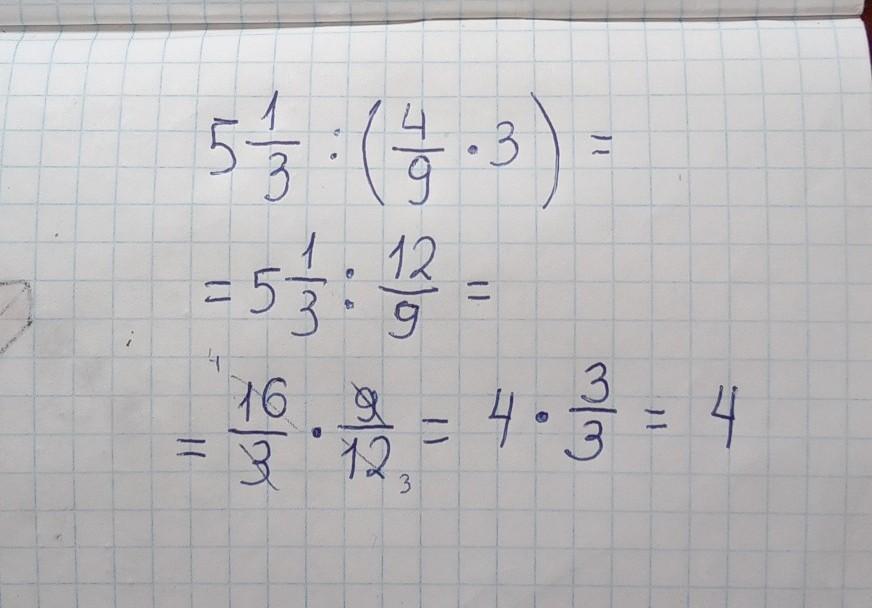 5 1/3 : (4/9 · 3) =
= 5 1/3 : 12/9 =
4
= 16/3 · 9/12 = 4 · 3/3 = 4
3